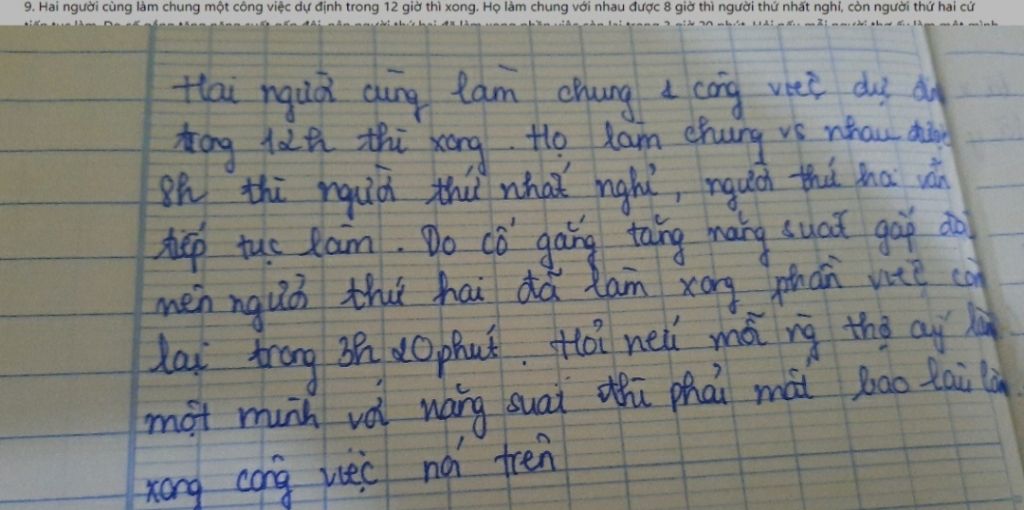 9. Hai người cùng làm chung một công việc dự định trong 12 giờ thì xong. Họ làm chung với nhau được 8 giờ thì người thứ nhất nghỉ, còn người thứ hai cứ
Hai người cùng làm chung 1 công việc dự
trong 12h thì xong. Họ làm chung vs nhau được
8h thì người thứ nhất nghỉ, người thứ hai vẫn
tiếp tục làm. Do cố gắng tăng năng suất gấp đôi
nên người thứ hai đã làm xong phần việc còn
lại trong 3h 20 phút. Hỏi nếu mỗi ng thợ ấy làm
một mình với năng suất thì phải mất bao lâu làm
xong công việc nói trên